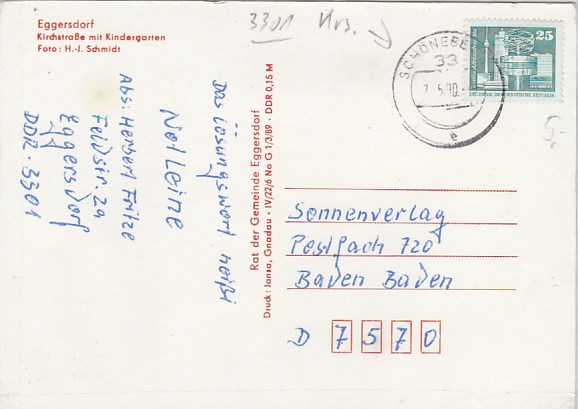 Eggersdorf
Kirchstraße mit Kindergarten
Foto: H.-J. Schmidt
3301 Krs.
SCHÖNEBE
33
2.5.90.
e
25
5,-
Das Lösungswort heißt
Notleine
Abs: Herbert Fritze
Feldstr. 29
Eggersdorf
DDR-3301
Rat der Gemeinde Eggersdorf
Druck: Jansa, Gnadau · IV/22/6 No G 1/3/89 · DDR 0,15 M
Sonnenverlag
Postfach 720
Baden Baden
D 7570